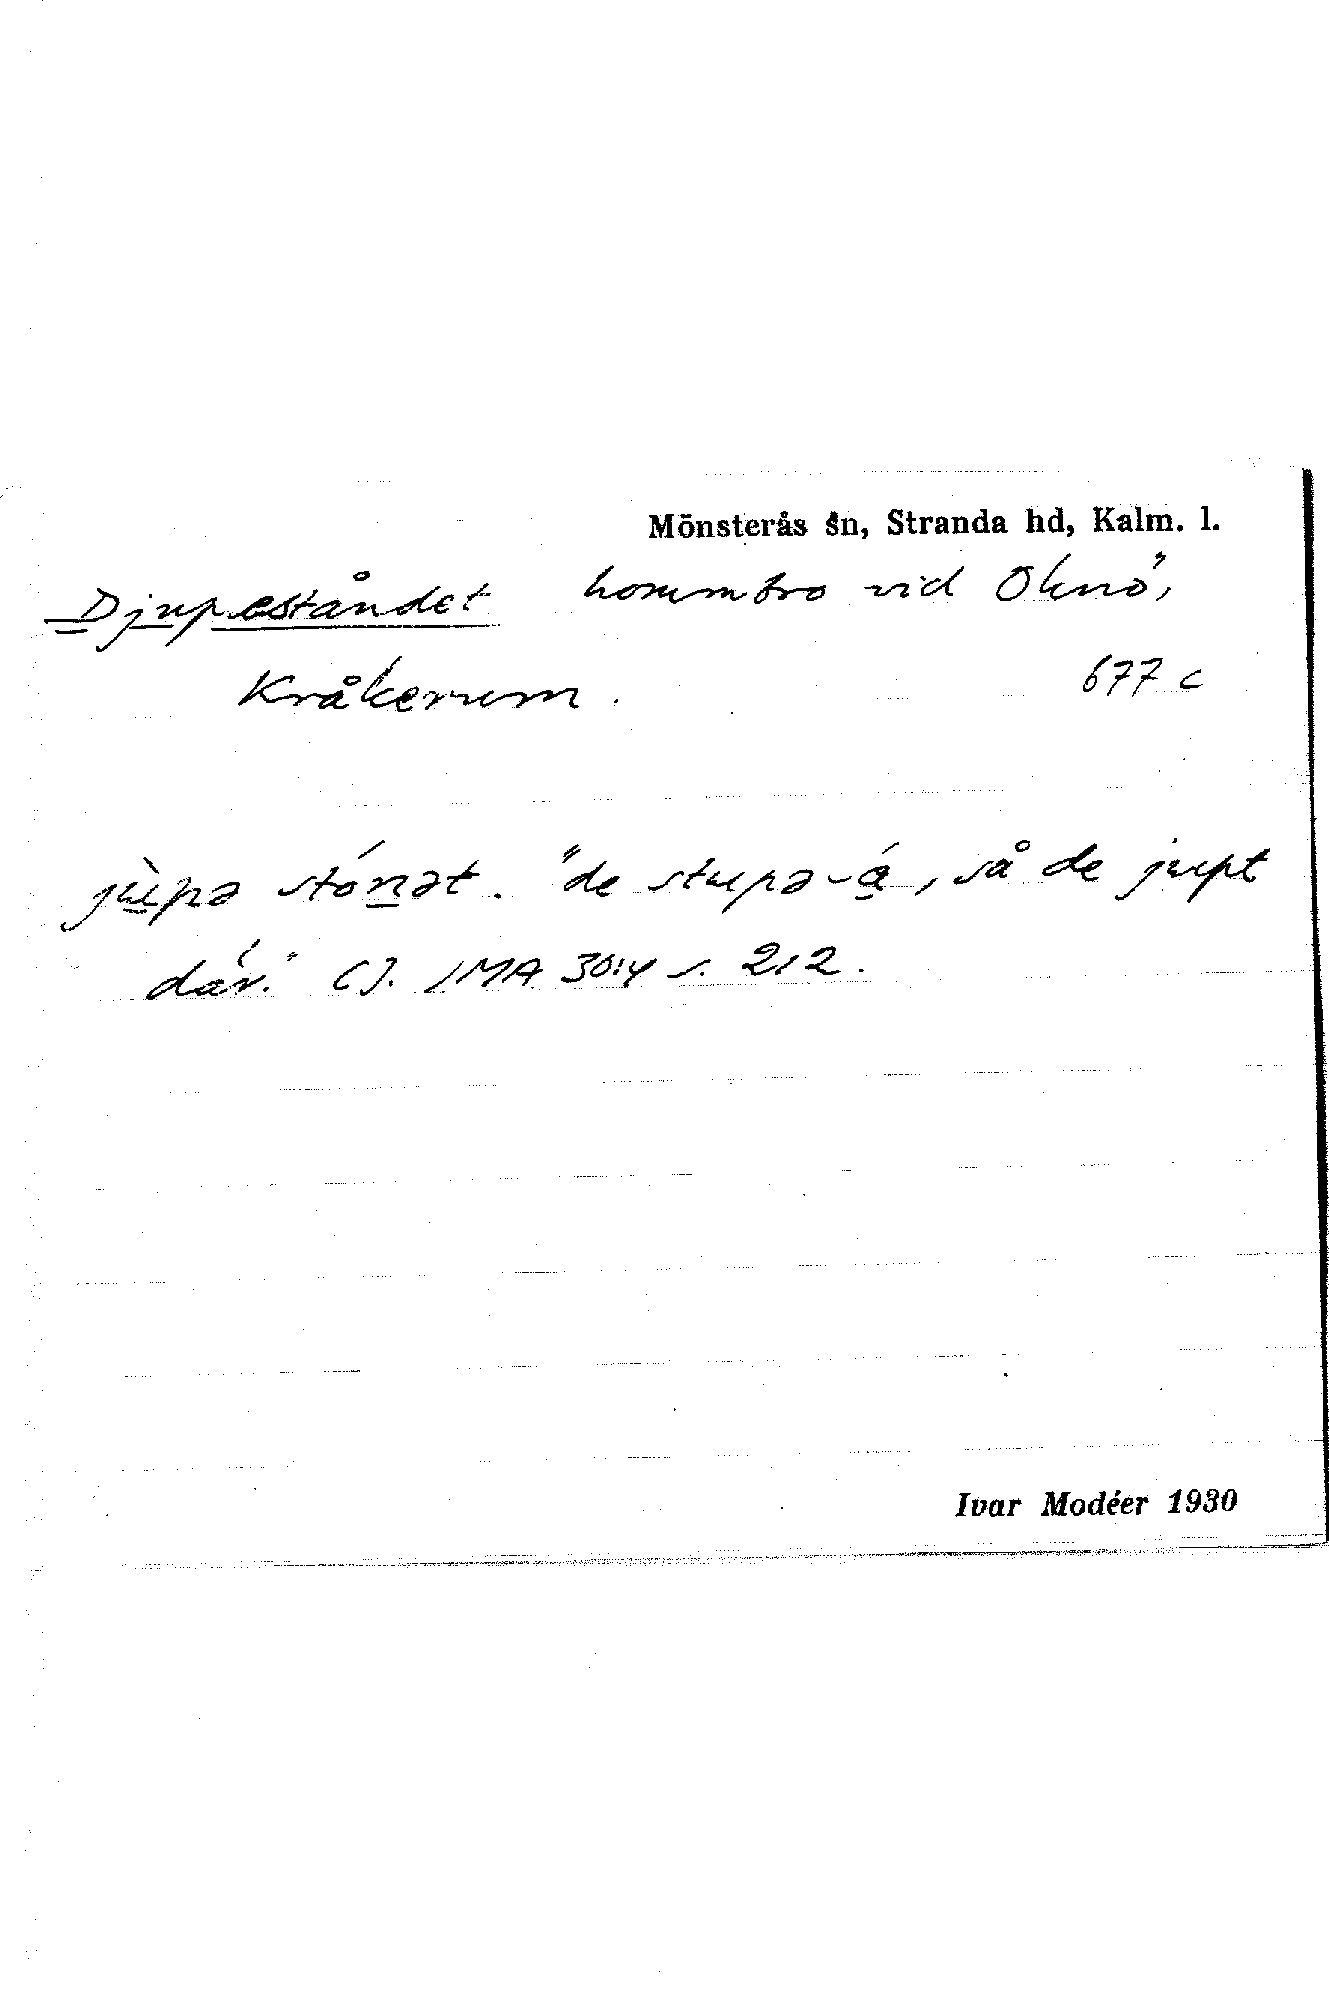 Mönsterås sn, Stranda hd, Kalm. l.
Djupeståndet hommbro vid Oknö,
Kråkerum. 677 c
jùpə stónət. "de stupə-á, så de jupt
där." CJ. IMA 30:4 s. 212.
Ivar Modéer 1930